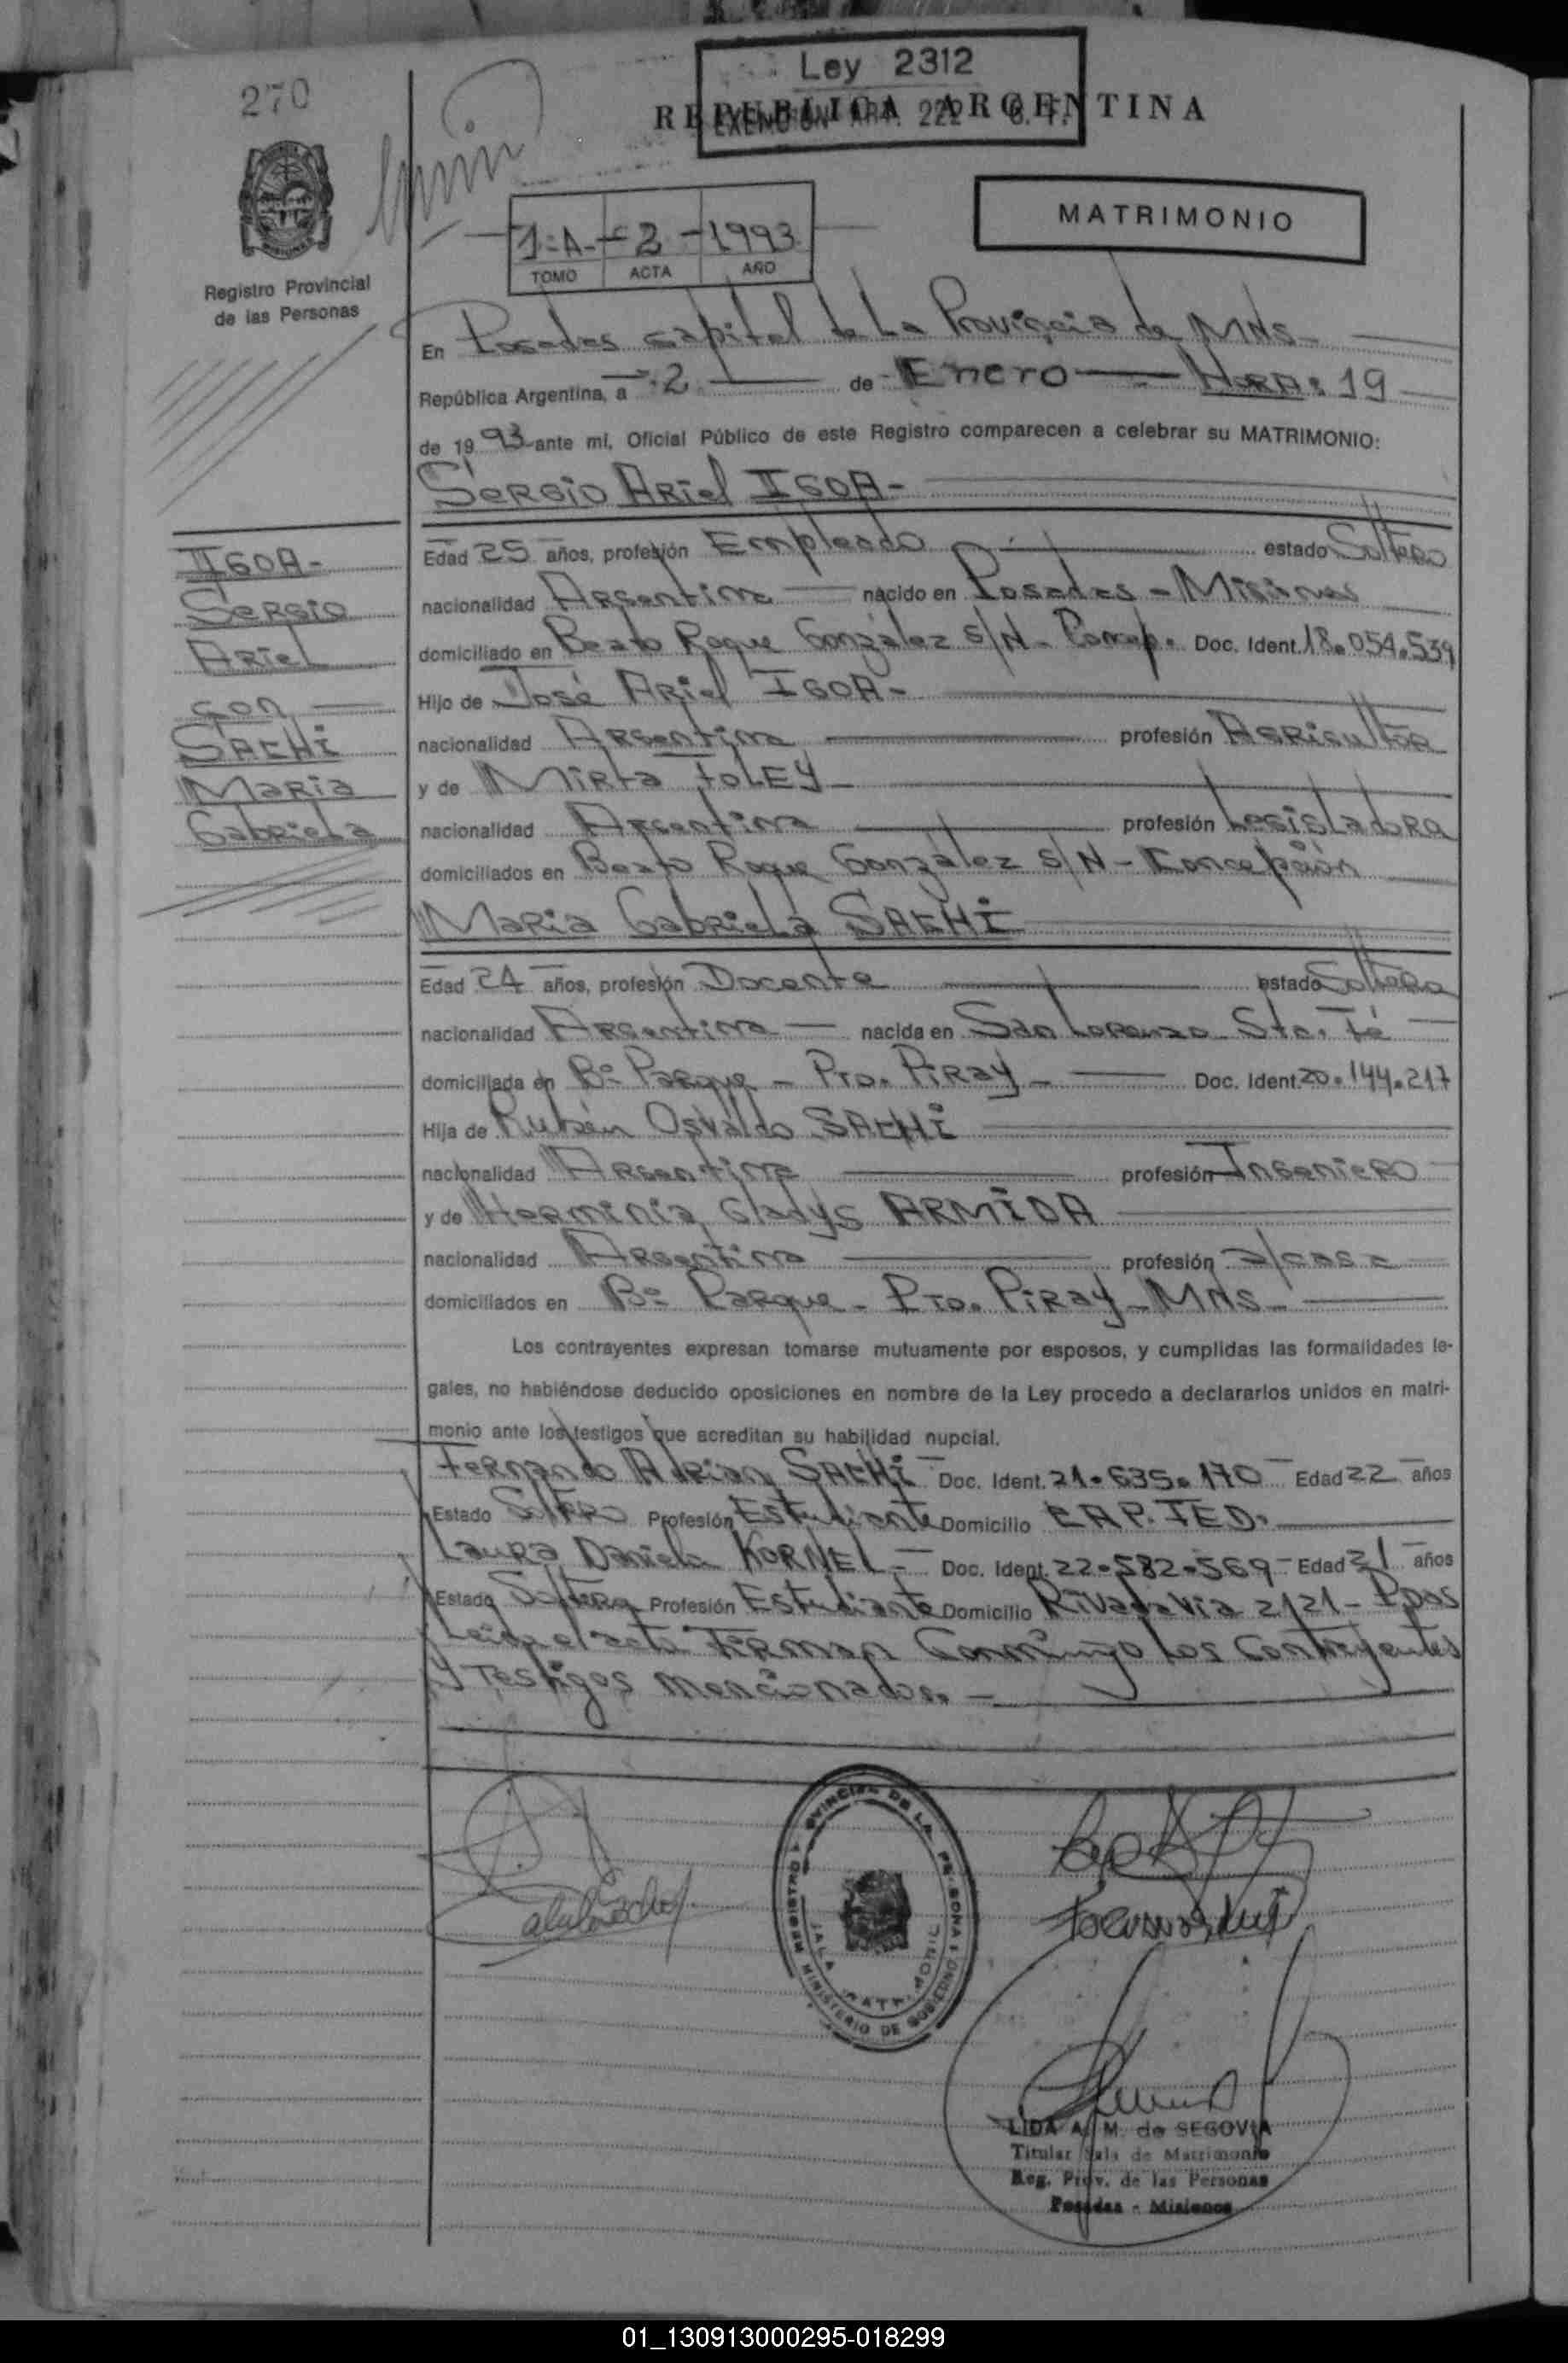 270
Ley 2312
EXENCION ART. 222 C. F.
REPUBLICA ARGENTINA
MATRIMONIO
1-A- - 2 - 1993
TOMO ACTA AÑO
Registro Provincial
de las Personas
En Posadas capital de La Provincia de MNS-
República Argentina, a 2 de Enero - HORA: 19
de 1993 ante mi, Oficial Público de este Registro comparecen a celebrar su MATRIMONIO:
Sergio Ariel IGOA-
IGOA-
Sergio
Ariel
con
SACHI
Maria
Gabriela
Edad 25 años, profesión Empleado estado Soltero
nacionalidad Argentina nacido en Posadas - Misiones
domiciliado en Beato Roque González S/N - Concep. Doc. Ident. 18.054.539
Hijo de José Ariel IGOA-
nacionalidad Argentina profesión Agricultor
y de Mirta FOLEY
nacionalidad Argentina profesión Legisladora
domiciliados en Beato Roque González S/N - Concepción
Maria Gabriela SACHI
Edad 24 años, profesión Docente estado Soltera
nacionalidad Argentina nacida en San Lorenzo Sta. Fé
domiciliada en Bº Parque - Pto. Piray - Doc. Ident. 20.144.217
Hija de Rubén Osvaldo SACHI
nacionalidad Argentina profesión Ingeniero
y de Herminia Gladys ARMIDA
nacionalidad Argentina profesión casa
domiciliados en Bº Parque - Pto. Piray - MNS-
Los contrayentes expresan tomarse mutuamente por esposos, y cumplidas las formalidades le-
gales, no habiéndose deducido oposiciones en nombre de la Ley procedo a declararlos unidos en matri-
monio ante los testigos que acreditan su habilidad nupcial.
Fernando Adrian SACHI Doc. Ident. 21.635.170 Edad 22 años
Estado Soltero Profesión Estudiante Domicilio CAP. FED.
Laura Daniela KORNEL - Doc. Ident. 22.582.569 - Edad 21 años
Estado Soltera Profesión Estudiante Domicilio Rivadavia 2121 - Pdas
Leida el acta Firman Conmingo los Contrayentes
y Testigos mencionados. -
REGISTRO PROVINCIAL DE LAS PERSONAS
MINISTERIO DE GOBIERNO
SALA MATRIMONIO
LIDA A. M. de SEGOVIA
Titular Sala de Matrimonio
Reg. Prov. de las Personas
Posadas - Misiones
01_130913000295-018299